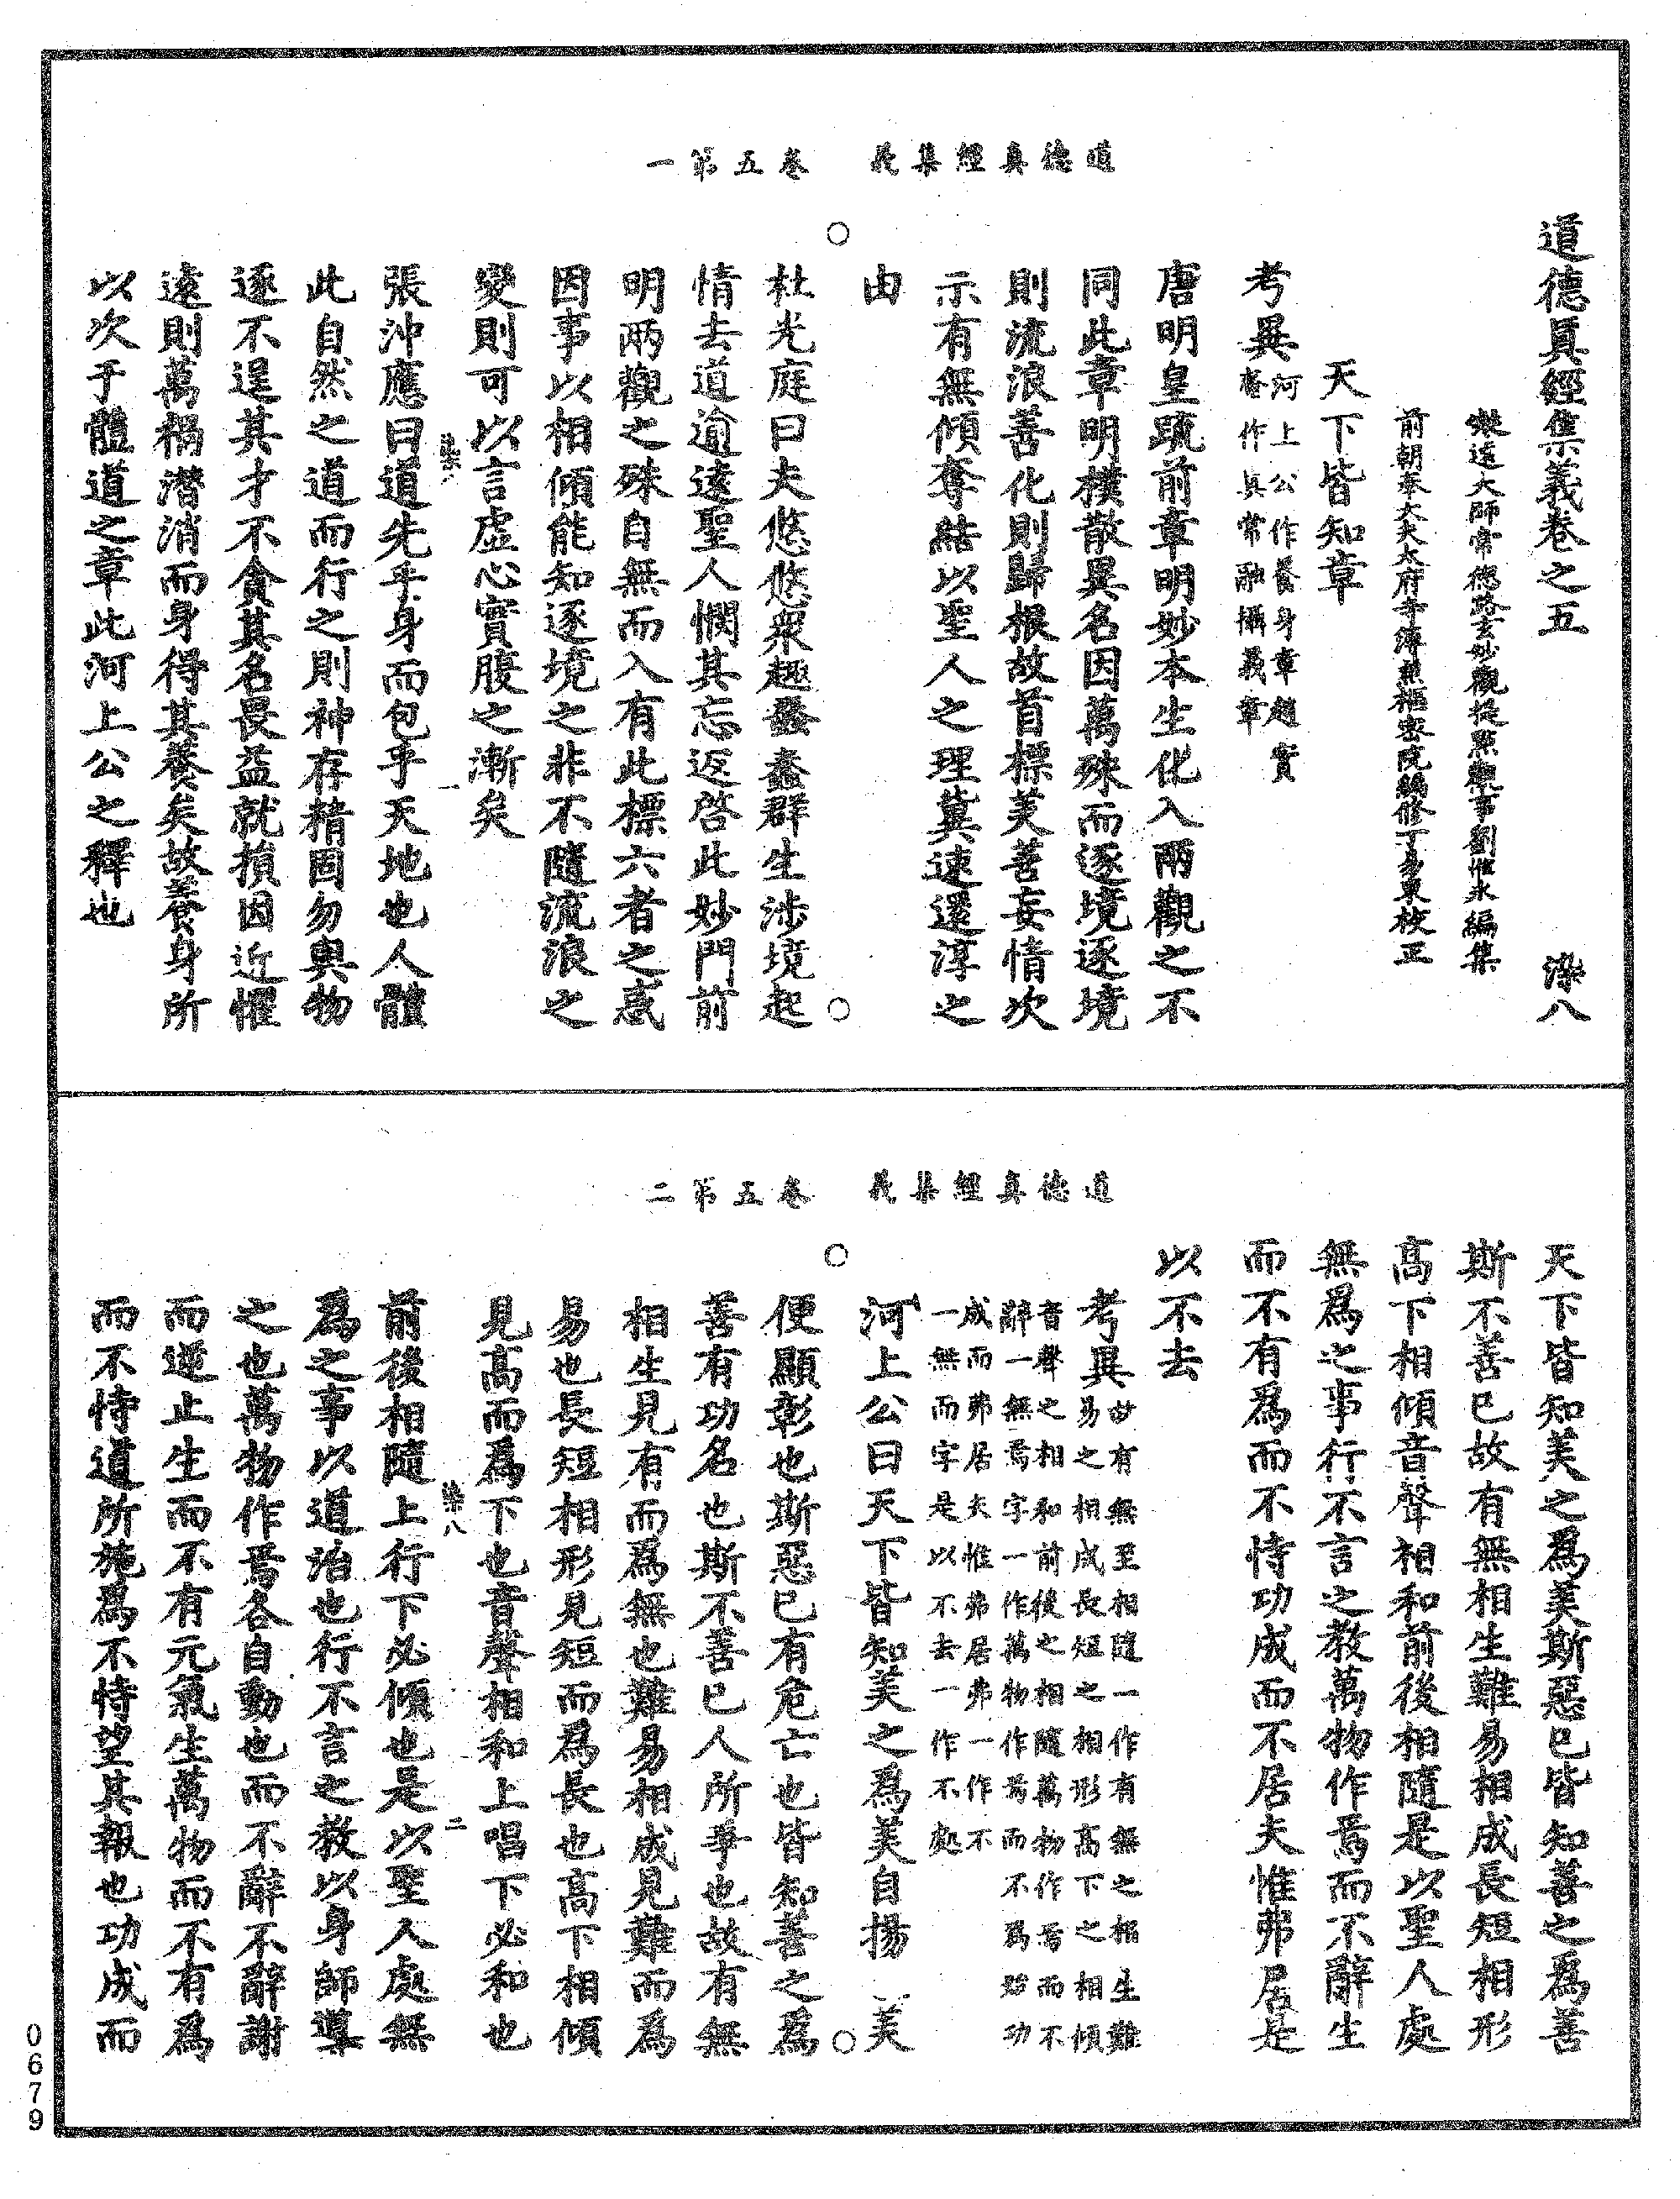 道德真經集義　卷五第一
道德眞經集義卷之五　染八
凝遠大師常德路玄妙觀提點觀事劉惟永編集
前朝奉大夫太府寺簿兼樞密院編修丁易東校正
天下皆知章
考異河上公作養身章趙實
菴作真常融攝義章
唐明皇疏前章明妙本生化入兩觀之不
同此章明樸散異名因萬殊而逐境逐境
則流浪善化則歸根故首標美善妄情次
示有無傾奪結以聖人之理冀速還淳之
由
杜光庭曰夫悠悠衆趣蠢蠢群生涉境起
情去道逾遠聖人憫其忘返啓此妙門前
明兩觀之殊自無而入有此標六者之惑
因事以相傾能知逐境之非不隨流浪之
變則可以言虛心實腹之漸矣
染八　一
張沖應曰道先乎身而包乎天地也人體
此自然之道而行之則神存精固勿與物
逐不逞其才不貪其名畏益就損因近懼
遠則萬禍潛消而身得其養矣故養身所
以次于體道之章此河上公之釋也
道德真經集義　卷五第二
天下皆知美之爲美斯惡已皆知善之爲善
斯不善已故有無相生難易相成長短相形
高下相傾音聲相和前後相隨是以聖人處
無爲之事行不言之教萬物作焉而不辭生
而不有爲而不恃功成而不居夫惟弗居是
以不去
考異故有無至相隨一作有無之相生難
易之相成長短之相形高下之相傾
音聲之相和前後之相隨萬物作焉而不
辭一無焉字一作萬物作焉而不爲始功
成而弗居夫惟弗居弗一作不
一無而字是以不去一作不處
河上公曰天下皆知美之爲美自揚　美
便顯彰也斯惡已有危亡也皆知善之爲
善有功名也斯不善已人所爭也故有無
相生見有而爲無也難易相成見難而爲
易也長短相形見短而爲長也高下相傾
見高而爲下也音聲相和上唱下必和也
染八　二
前後相隨上行下必傾也是以聖人處無
爲之事以道治也行不言之教以身師導
之也萬物作焉各自動也而不辭不辭謝
而逆止生而不有元氣生萬物而不有爲
而不恃道所施爲不恃望其報也功成而
0679